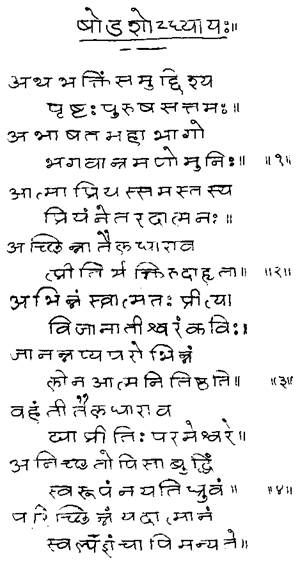 षोडशोऽध्यायः॥
अथ भक्तिं समुद्दिश्य
पृष्टः पुरुषसत्तमः॥
अभाषत महाभागो
भगवान्रमणो मुनिः॥ ॥१॥
आत्मा प्रियस्समस्तस्य
प्रियं नेतरदात्मनः॥
अच्छिन्ना तैलधाराव
त्प्रीतिर्भक्तिरुदाहृता॥ ॥२॥
अभिन्नं स्वात्मनः प्रीत्या
विजानातीश्वरं कविः।
जानन्नप्यपरो भिन्नं
लीन आत्मनि तिष्ठते॥ ॥३॥
वहंती तैलधाराव
द्या प्रीतिः परमेश्वरे॥
अनिच्छतोपि सा बुद्धिं
स्वरूपं नयति ध्रुवं॥ ॥४॥
परिच्छिन्नं यदात्मानं
स्वल्पज्ञं चापि मन्यते॥